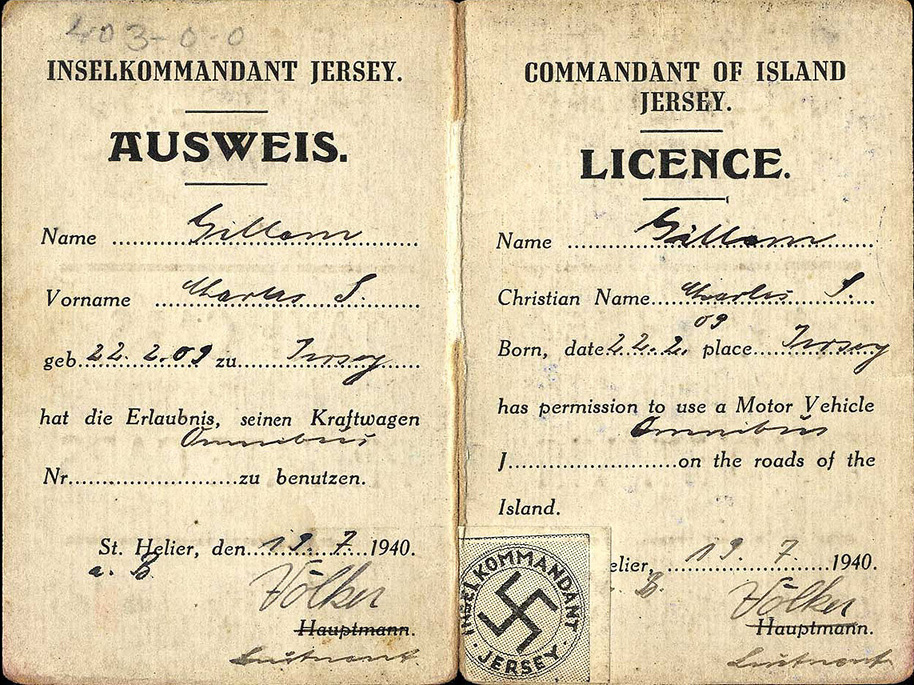 403-0-0
INSELKOMMANDANT JERSEY.
AUSWEIS.
Name Gillam
Vorname Charles S.
geb. 22. 2. 09 zu Jersey
hat die Erlaubnis, seinen Kraftwagen
Omnibus
Nr. zu benutzen.
St. Helier, den 19. 7. 1940.
a. B.
Völker
Hauptmann.
Leutnant
COMMANDANT OF ISLAND
JERSEY.
LICENCE.
Name Gillam
Christian Name Charles S.
09
Born, date 22. 2. place Jersey
has permission to use a Motor Vehicle
Omnibus
J. on the roads of the
Island.
INSELKOMMANDANT
JERSEY
elier, 19. 7. 1940.
B.
Völker
Hauptmann.
Leutnant